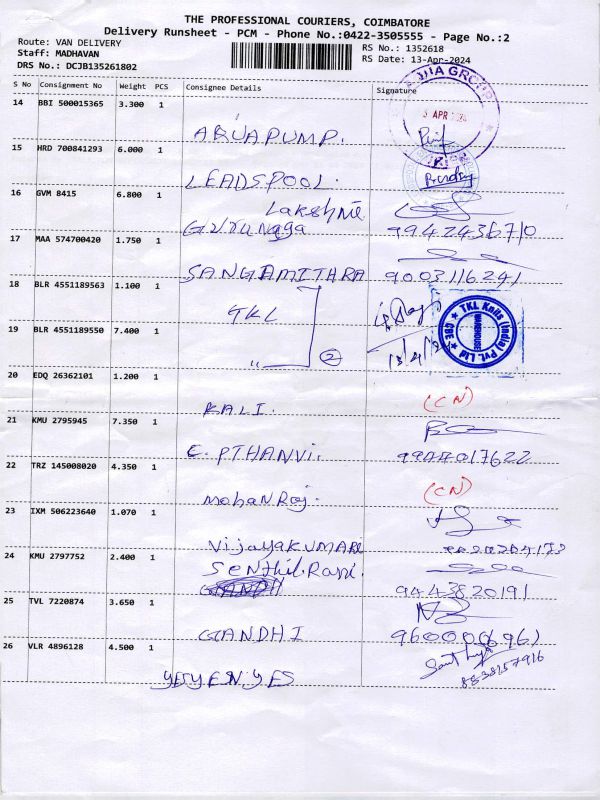 THE PROFESSIONAL COURIERS, COIMBATORE
Delivery Runsheet - PCM - Phone No.:0422-3505555 - Page No.:2
Route: VAN DELIVERY
Staff: MADHAVAN
DRS No.: DCJB135261802
RS No.: 1352618
RS Date: 13-Apr-2024
S No Consignment No Weight PCS Consignee Details Signature
14 BBI 500015365 3.300 1
ARUAPUMP.
APR
15 HRD 700841293 6.000 1
LEADSPOOL.
16 GVM 8415 6.800 1
Lakshmie
Gurunaga 9942436710
17 MAA 574700420 1.750 1
SANGAMITHRA 9003116241
18 BLR 4551189563 1.100 1
TKL
TKL Knits (India) Pvt. Ltd
WAREHOUSE
CBE
19 BLR 4551189550 7.400 1
" 2
20 EDQ 26362101 1.200 1
KALI. (CN)
21 KMU 2795945 7.350 1
E. PTHANVI.
22 TRZ 145008020 4.350 1
MohanRaj. (CN)
23 IXM 506223640 1.070 1
VijayaKUMARE
24 KMU 2797752 2.400 1
Senthil.Rani.
9443820191
25 TVL 7220874 3.650 1
GANDHI
26 VLR 4896128 4.500 1
YESYENYES